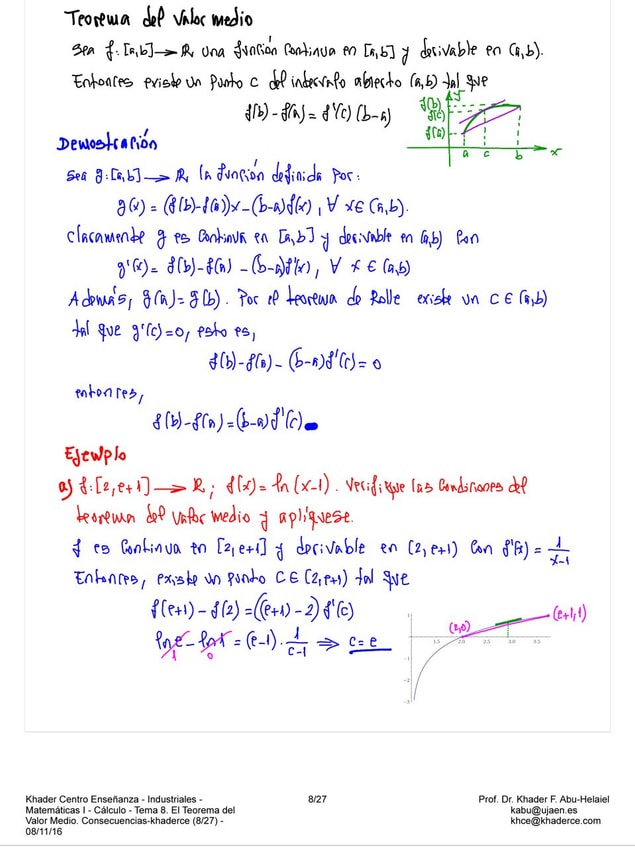 Teorema del valor medio
Sea f:[a,b]→ℝ una función continua en [a,b] y derivable en (a,b).
Entonces existe un punto c del intervalo abierto (a,b) tal que
f(b)-f(a)=f'(c)(b-a)
y
f(b)
f(c)
f(a)
a c b x
Demostración
Sea g:[a,b]→ℝ la función definida por:
g(x)=(f(b)-f(a))x-(b-a)f(x), ∀ x∈(a,b).
Claramente g es continua en [a,b] y derivable en (a,b) con
g'(x)= f(b)-f(a)-(b-a)f'(x), ∀ x∈(a,b)
Además, g(a)=g(b). Por el teorema de Rolle existe un c∈(a,b)
tal que g'(c)=0, esto es,
f(b)-f(a)-(b-a)f'(c)=0
entonces,
f(b)-f(a)=(b-a)f'(c)
Ejemplo
a) f:[2,e+1]→ℝ; f(x)=ln(x-1). Verifique las condiciones del
teorema del valor medio y aplíquese.
f es continua en [2,e+1] y derivable en (2,e+1) con f'(x)=1/(x-1)
Entonces, existe un punto c∈(2,e+1) tal que
f(e+1)-f(2)=((e+1)-2)f'(c)
ln e - ln 1 = (e-1)·1/(c-1) ⇒ c=e
1 0
(2,0)
(e+1,1)
1
1.5 2.0 2.5 3.0 3.5
-1
-2
-3
Khader Centro Enseñanza - Industriales -
Matemáticas I - Cálculo - Tema 8. El Teorema del
Valor Medio. Consecuencias-khaderce (8/27) -
08/11/16
8/27
Prof. Dr. Khader F. Abu-Helaiel
kabu@ujaen.es
khce@khaderce.com